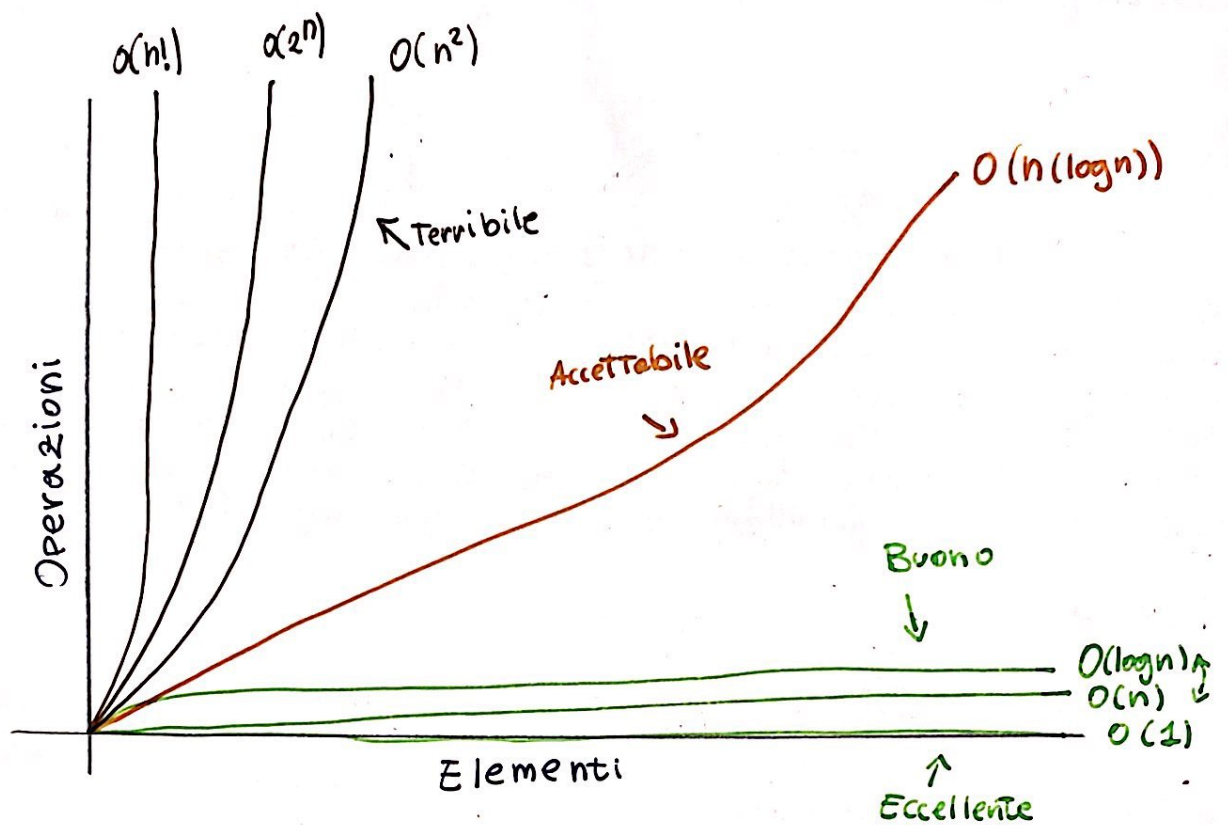 O(n!)
O(2ⁿ)
O(n²)
O(n(logn))
Terribile
Accettabile
Operazioni
Buono
O(logn)
O(n)
O(1)
Elementi
Eccellente